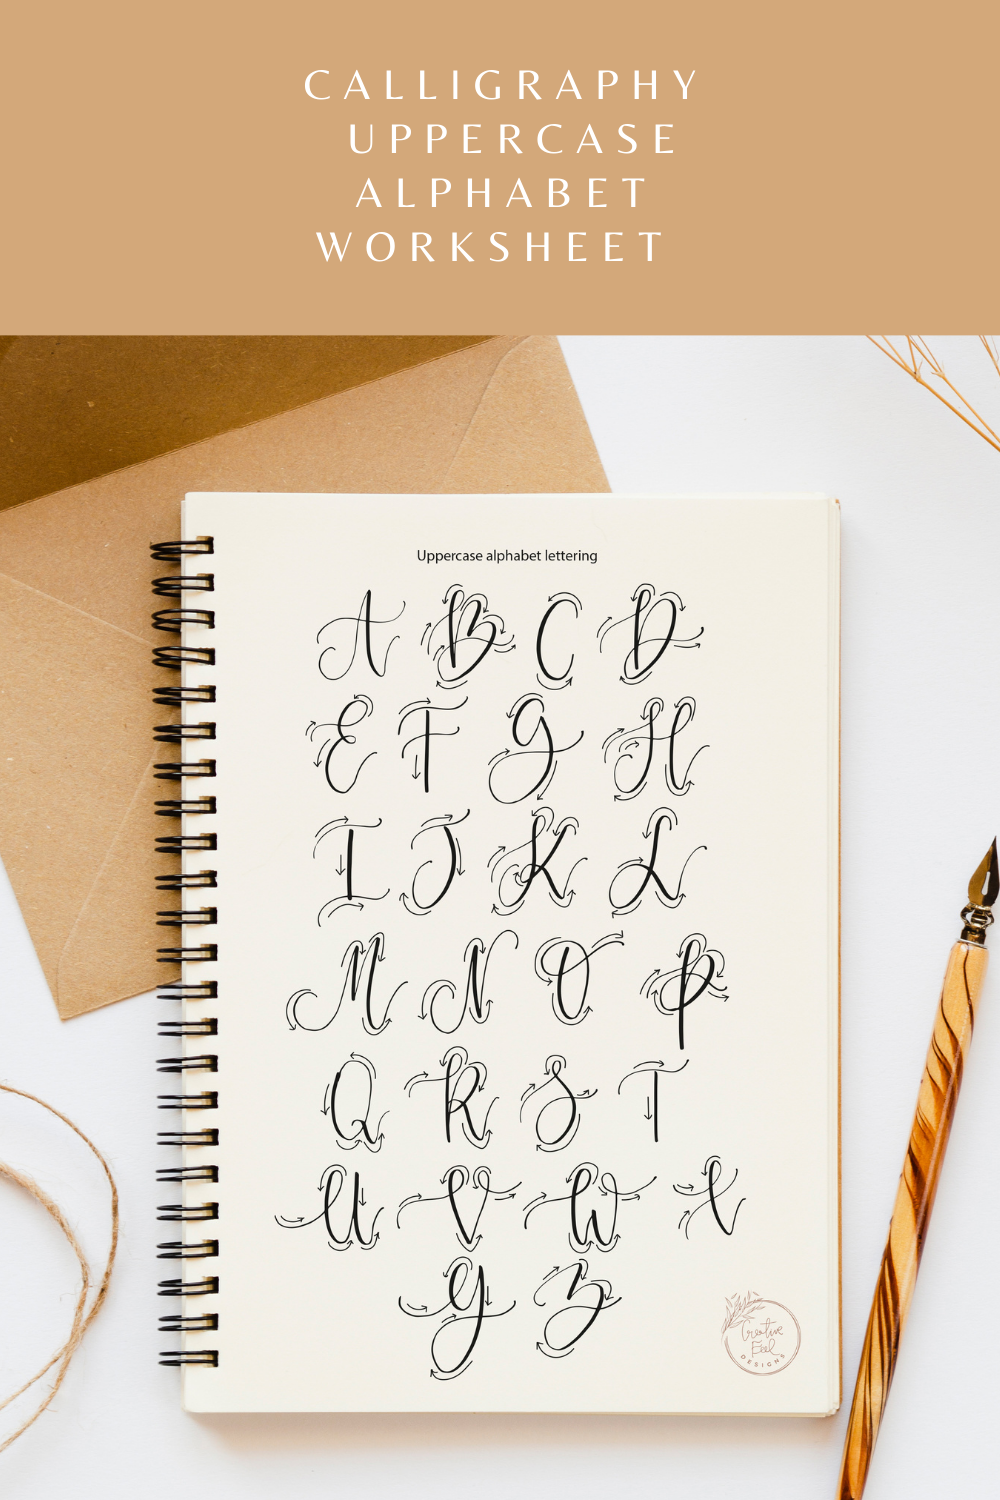 CALLIGRAPHY
UPPERCASE
ALPHABET
WORKSHEET
Uppercase alphabet lettering
A B C D
E F G H
I J K L
M N O P
Q R S T
U V W X
Y Z
Creative
Feel
DESIGNS